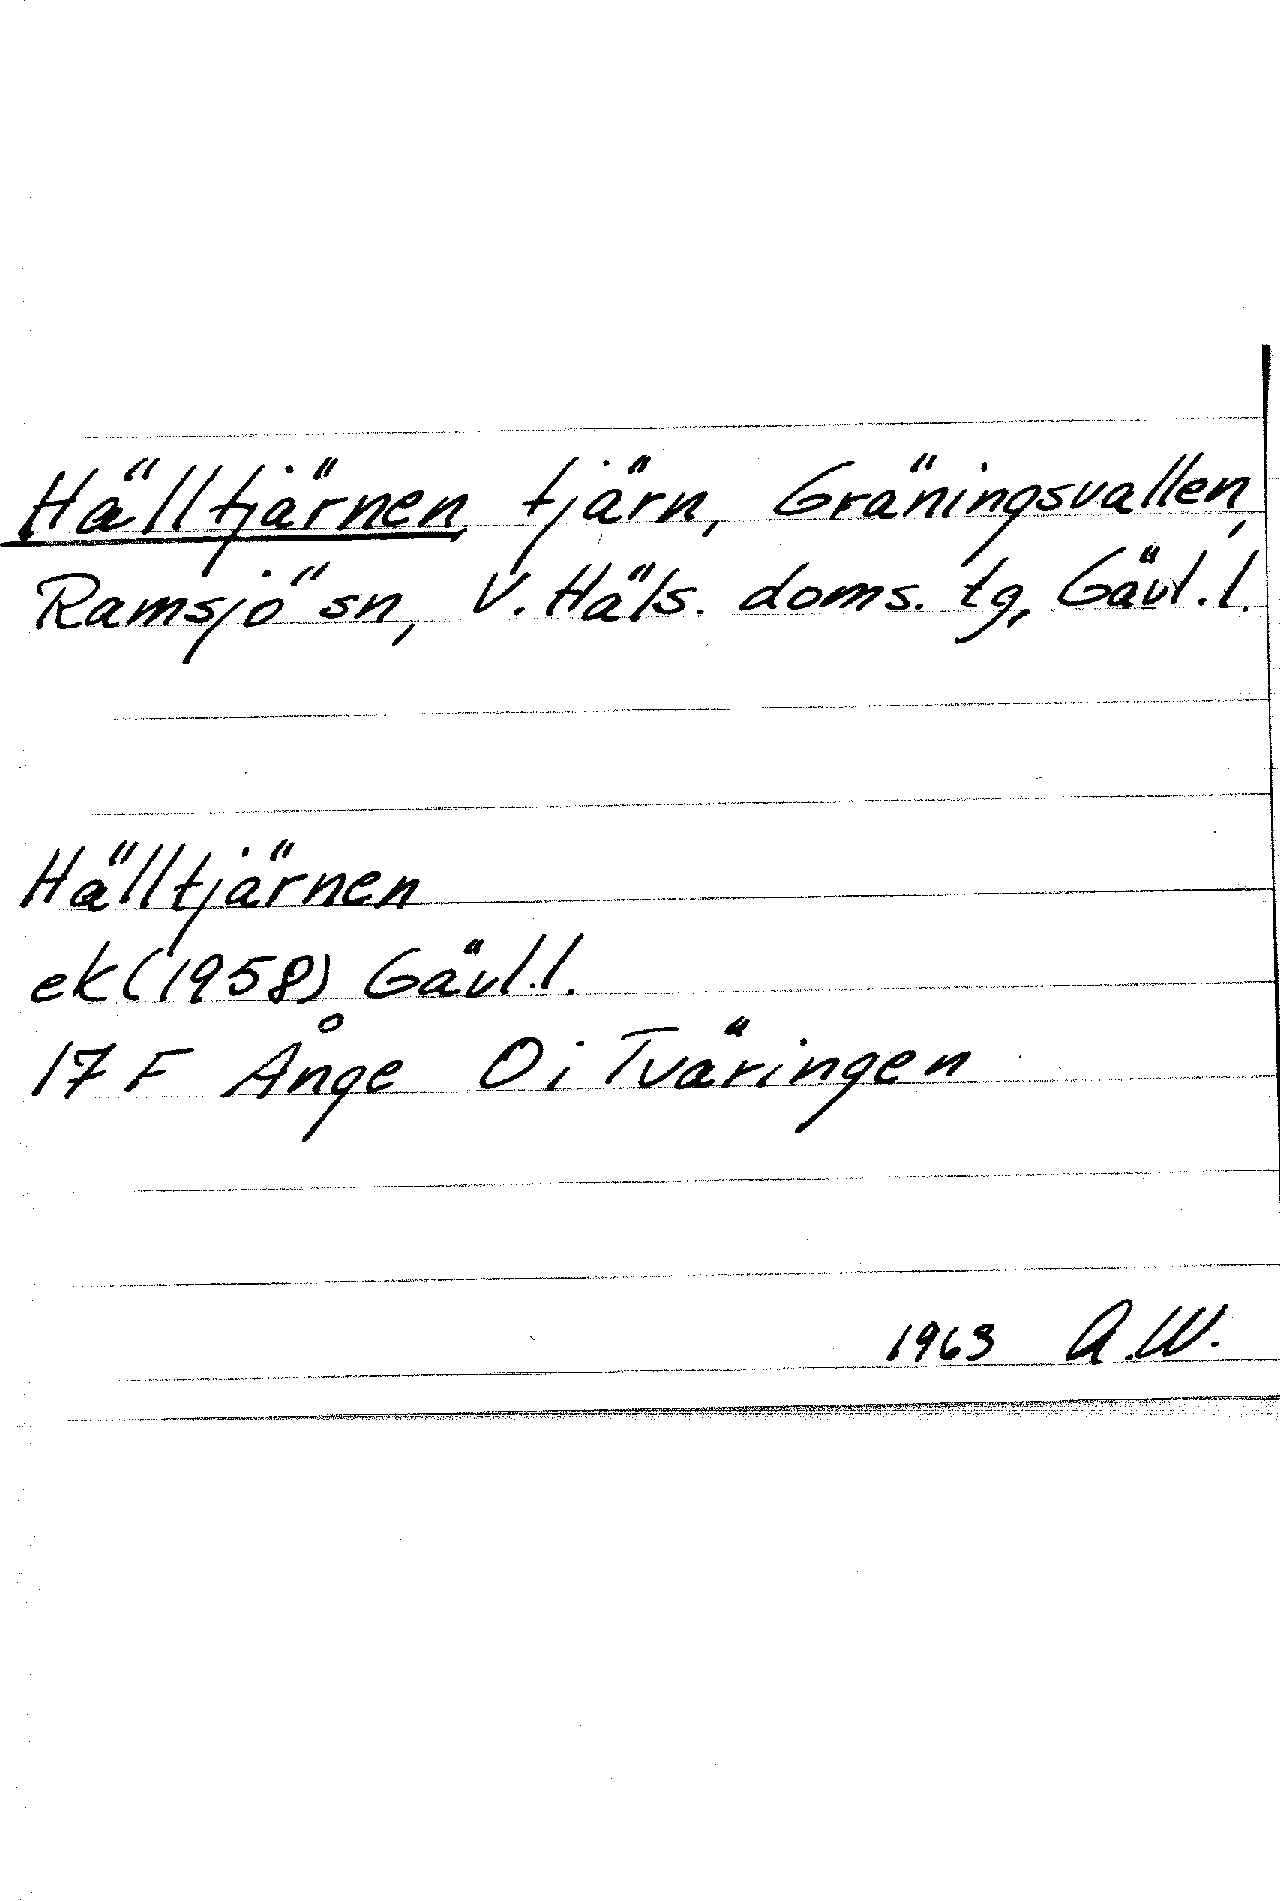 Hälltjärnen tjärn, Gräningsvallen,
Ramsjö sn, V. Häls. doms. tg, Gävl. l.
Hälltjärnen
ek (1958) Gävl. l.
17 F Ånge 0 i Tväringen
1963 A.W.